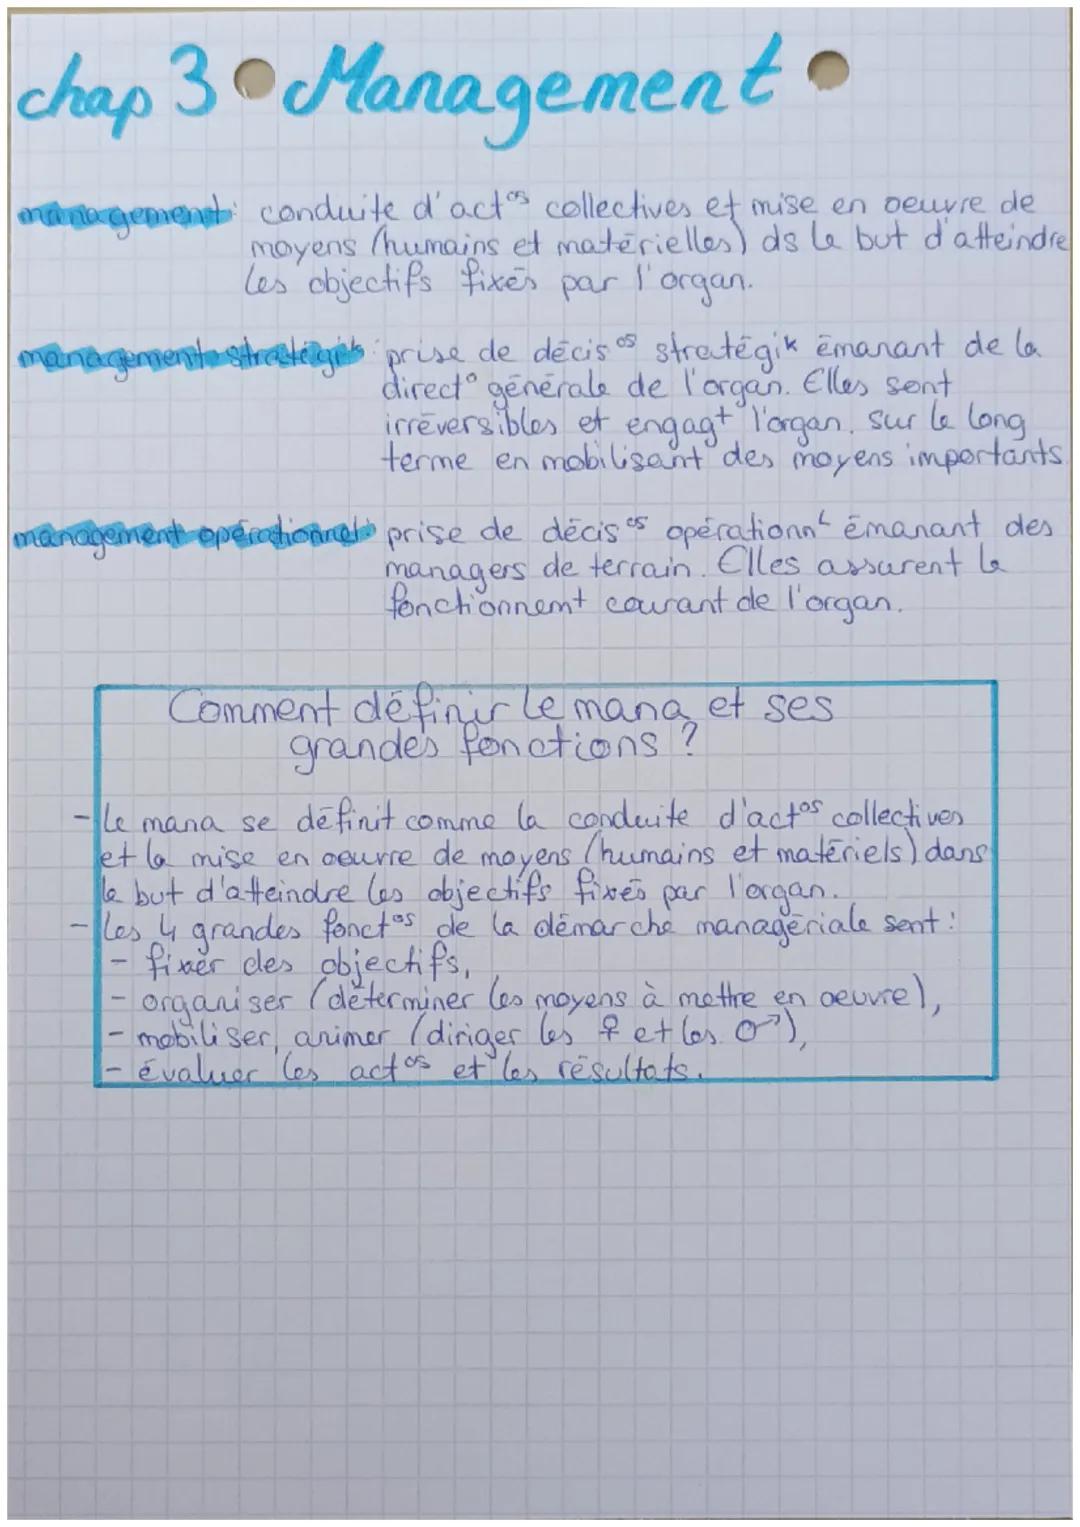 chap 3 Management
management: conduite d'act°s collectives et mise en oeuvre de
moyens (humains et matérielles) ds le but d'atteindre
les objectifs fixés par l'organ.
management stratégik: prise de décis°s stratégik émanant de la
direct° générale de l'organ. Elles sont
irréversibles et engagt l'organ. sur le long
terme en mobilisant des moyens importants.
management opérationnel: prise de décis°s opérationnL émanant des
managers de terrain. Elles assurent le
fonctionnemt courant de l'organ.
Comment définir le mana et ses
grandes fonctions ?
- Le mana se définit comme la conduite d'act°s collectives
et la mise en oeuvre de moyens (humains et matériels) dans
le but d'atteindre les objectifs fixés par l'organ.
- Les 4 grandes fonct°s de la démarche managériale sont :
- fixer des objectifs,
- organiser (déterminer les moyens à mettre en oeuvre),
- mobiliser, animer (diriger les ♀ et les ♂),
- évaluer les act°s et les résultats.